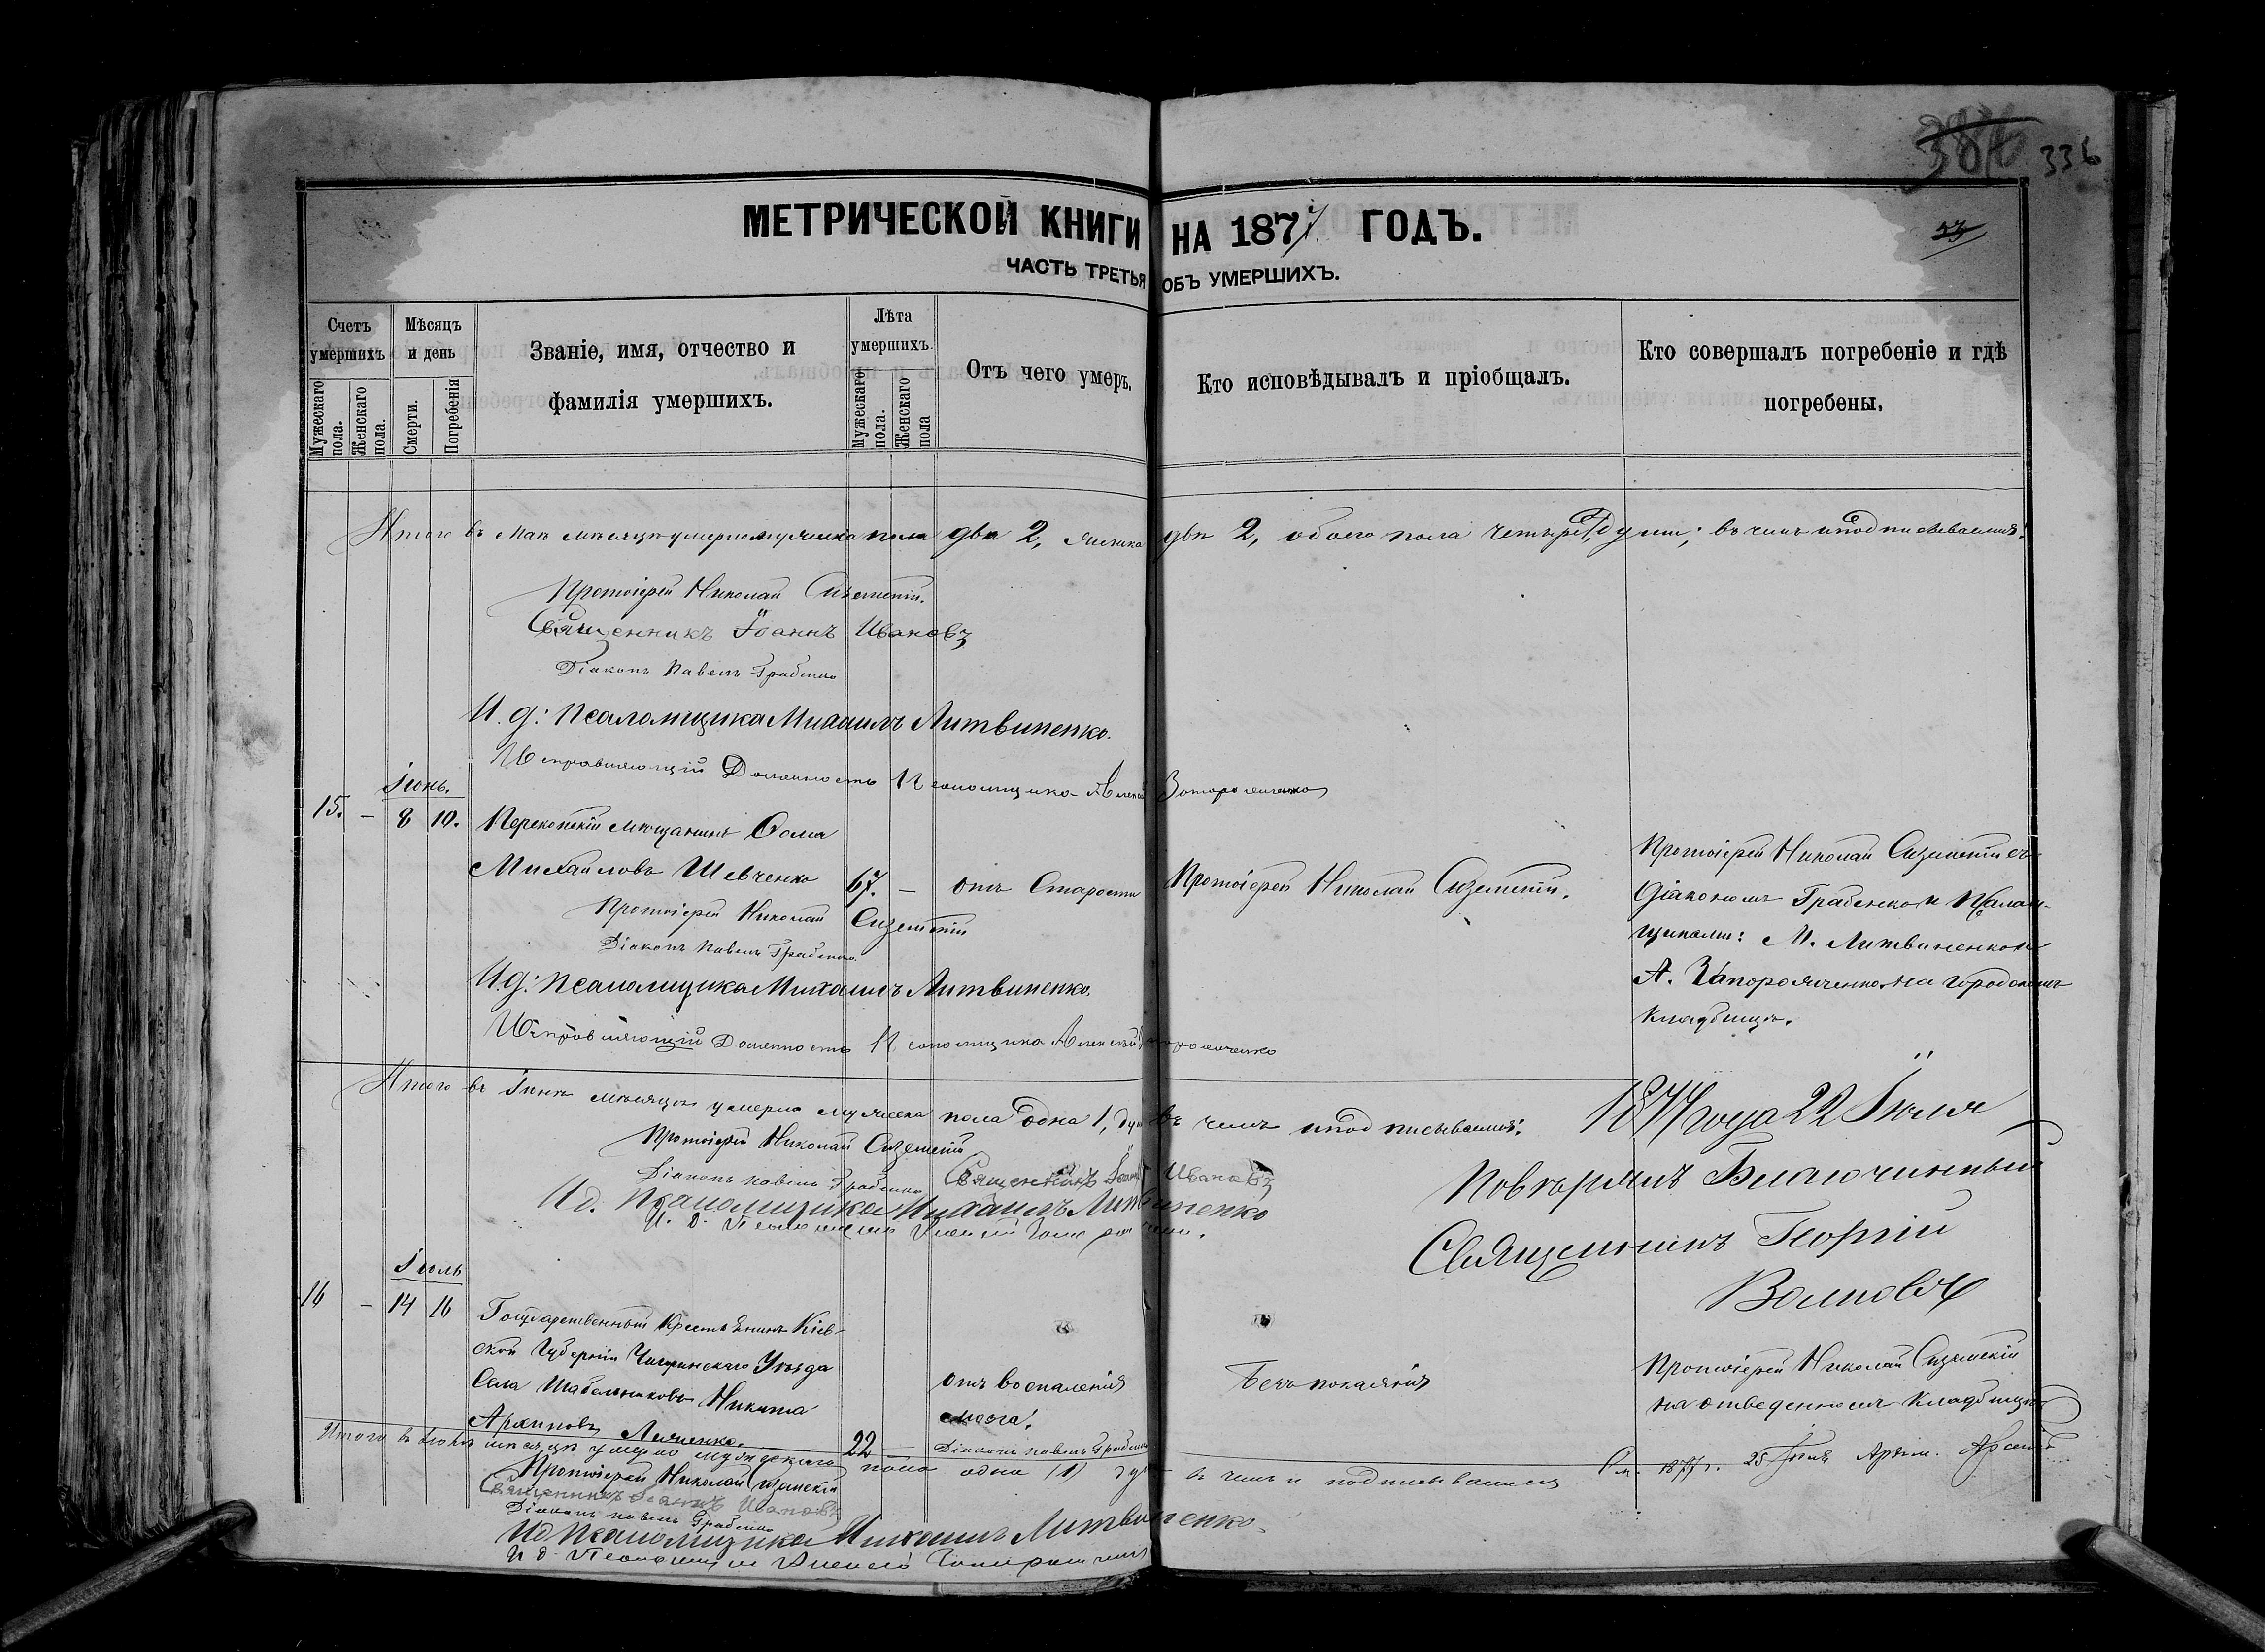 336
МЕТРИЧЕСКОЙ КНИГИ НА 1877 ГОДЪ.
ЧАСТЬ ТРЕТЬЯ ОБЪ УМЕРШИХЪ.
Счетъ умершихъ
Мужескаго пола.
Женскаго пола.
Мѣсяцъ и день
Смерти.
Погребенія
Званіе, имя, отчество и фамилія умершихъ.
Лѣта умершихъ.
Мужескаго пола.
Женскаго пола
Отъ чего умеръ.
Кто исповѣдывалъ и пріобщалъ.
Кто совершалъ погребеніе и гдѣ погребены.
Итого въ Маѣ мѣсяцѣ умерло мужеска пола два 2, женска двѣ 2, обоего пола четыре души; въ чемъ и подписываемся:
Протоіерей Николай
Священникъ Іоаннъ Ивановъ
Діаконъ Павелъ Грабенко
И. д: Псаломщика Михаилъ Литвиненко.
Исправляющій Должность Псаломщика Алексѣй Запорожченко
Іюнь.
15. – 8 10. Перекопскій мѣщанинъ Ѳома
Михайловъ Шевченко 67. – отъ Старости
Протоіерей Николай
Протоіерей Николай
Діаконъ Павелъ Грабенко.
И. д: Псаломщика Михаилъ Литвиненко.
Исправляющій Должность Псаломщика Алексѣй Запорожченко
Протоіерей Николай съ
Діакономъ Грабенко и Псалом-
щиками: М. Литвиненко и
А. Запорожченко на городскомъ
кладбищѣ.
Итого въ Іюнѣ мѣсяцѣ умерло мужеска пола одна 1, душа въ чемъ и подписываемся:
Протоіерей Николай
Діаконъ Павелъ Грабенко Священникъ Іоаннъ Ивановъ
И д. Псаломщика Михаилъ Литвиненко
И. д. Псаломщика Алексѣй
1877 года 22 Іюля
Повѣрялъ Благочинный
Священникъ Георгій
Волковъ
Іюль
16 – 14 16 Государственный Крестьянинъ Кіев-
ской Губерніи Чигринскаго Уѣзда
Села Шабельниковъ Никита
Архиповъ 22 –
отъ воспаленія
мозга.
Безъ покаянія
Протоіерей Николай
на отведенномъ кладбищѣ
Діаконъ Павелъ Грабенко
Итого въ Іюлѣ мѣсяцѣ умерло мужескаго пола одна (1) душа въ чемъ и подписываемся
Протоіерей Николай
Священникъ Іоаннъ Ивановъ
Діаконъ Павелъ Грабенко
И д Псаломщика Михаилъ Литвиненко.
И д Псаломщика Алексѣй